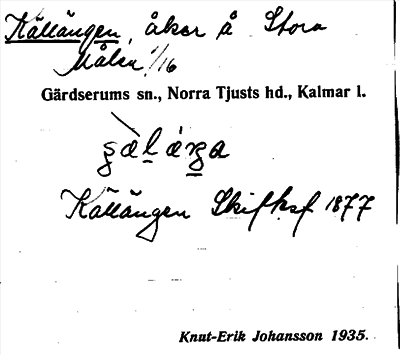 Källängen, åker å Stora
Målen 1/16
Gärdserums sn., Norra Tjusts hd., Kalmar l.
Källängen Skifksf 1877
Knut-Erik Johansson 1935.